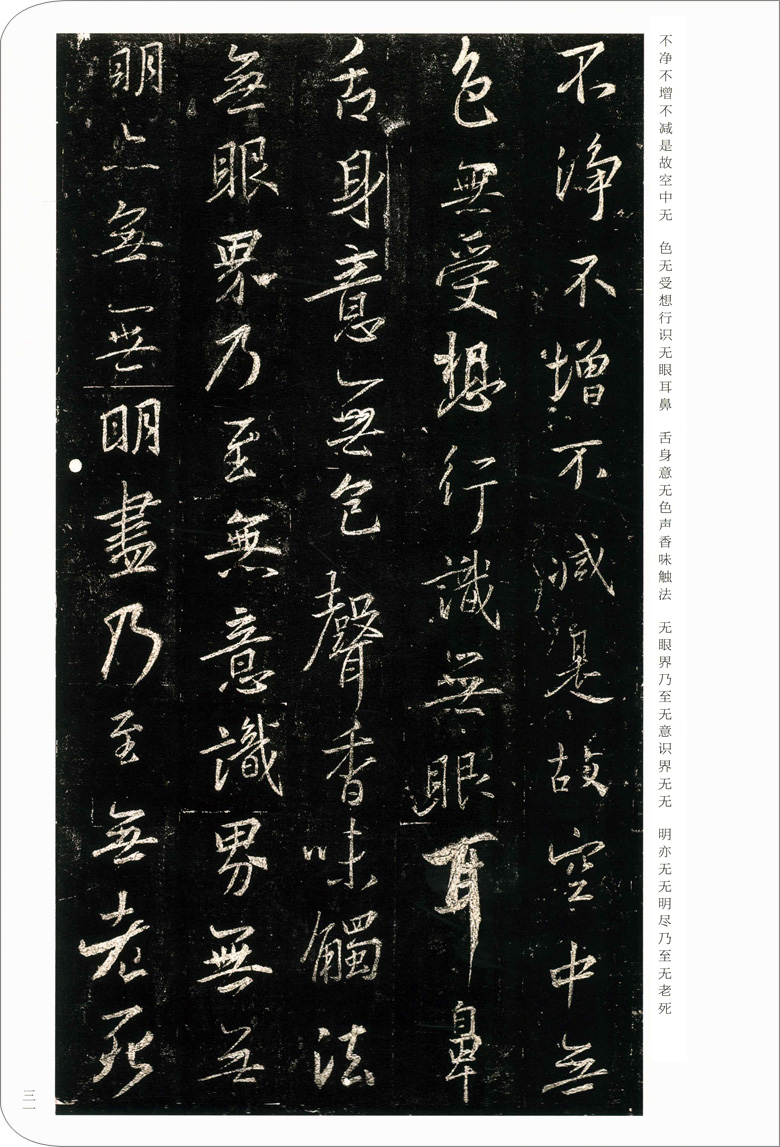 不净不增不减是故空中无　色无受想行识无眼耳鼻　舌身意无色声香味触法　无眼界乃至无意识界无无　明亦无无明尽乃至无老死
不淨不增不減是故空中無
色無受想行識無眼耳鼻
舌身意無色聲香味觸法
無眼界乃至無意識界無無
明亦無無明盡乃至無老死
三一